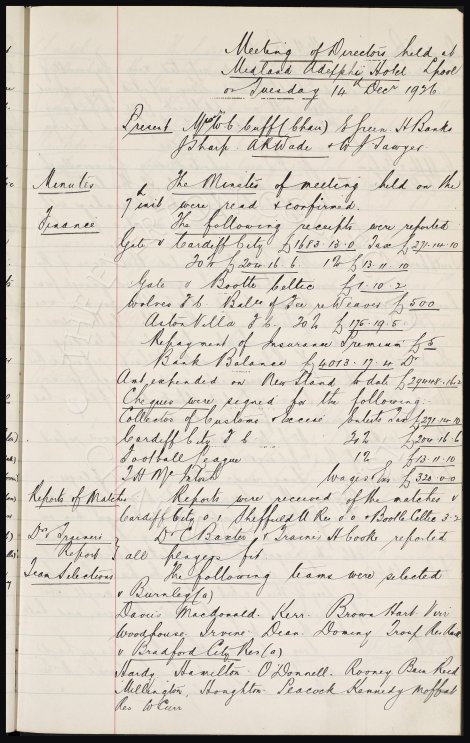 Meeting of Directors held at
Midland Adelphi Hotel L'pool
on Tuesday 14th Decr 1926
Present Messrs W C Cuff (Chair) E Green H Banks
J Sharp A R Wade & W J Sawyer
Minutes The Minutes of meeting held on the
7th inst were read & confirmed.
Finance The following receipts were reported
Gate v Cardiff City £1683.13.0 Tax £271.14.10
20% £204.16.6 1% £13.11.10
Gate v Bootle Celtic £1.10.2
Wolves F C Balce of Fee re Weaver £500
Aston Villa F C, 20% £175.19.5
Repayment of Insurance Premium £5
Bank Balance £4013.17.4 Dr
Amt expended on New Stand to date £29448.16.2
Cheques were signed for the following:-
Collector of Customs & Excise Entertt Tax £271.14.10
Cardiff City F C 20% £204.16.6
Football League 1% £13.11.10
T H McIntosh Wages &c £320.0.0
Reports of Matches Reports were received of the matches v
Cardiff City 0.1 Sheffield U Res 0.0 & Bootle Celtic 3.2
Dr & Trainers Report Dr C Baxter & Trainer H Cooke reported
all players fit
Team Selections The following teams were selected
v Burnley (a)
Davies Macdonald. Kerr. Brown Hart Virr
Woodhouse. Irvine. Dean. Dominy Troup Res
v Bradford City Res (a)
Hardy. Hamilton. O'Donnell. Rooney Bain Reed
Millington, Houghton. Peacock Kennedy Moffat
Res W Curr